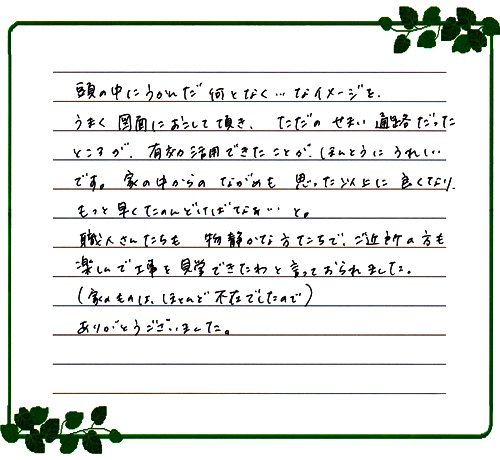 頭の中にうかんだ 何となく…なイメージを、
うまく 図面におこして頂き、ただの せまい 通路だった
ところが、有効活用できたことが、ほんとうに うれしい
です。家の中からの ながめも 思った以上に 良くなり、
もっと早くたのんどけばなぁ…と。
職人さんたちも 物静かな方たちで、ご近所の方も
楽しんで工事を見学できたわと言っておられました。
(家のものは、ほとんど不在でしたので)
ありがとうございました。